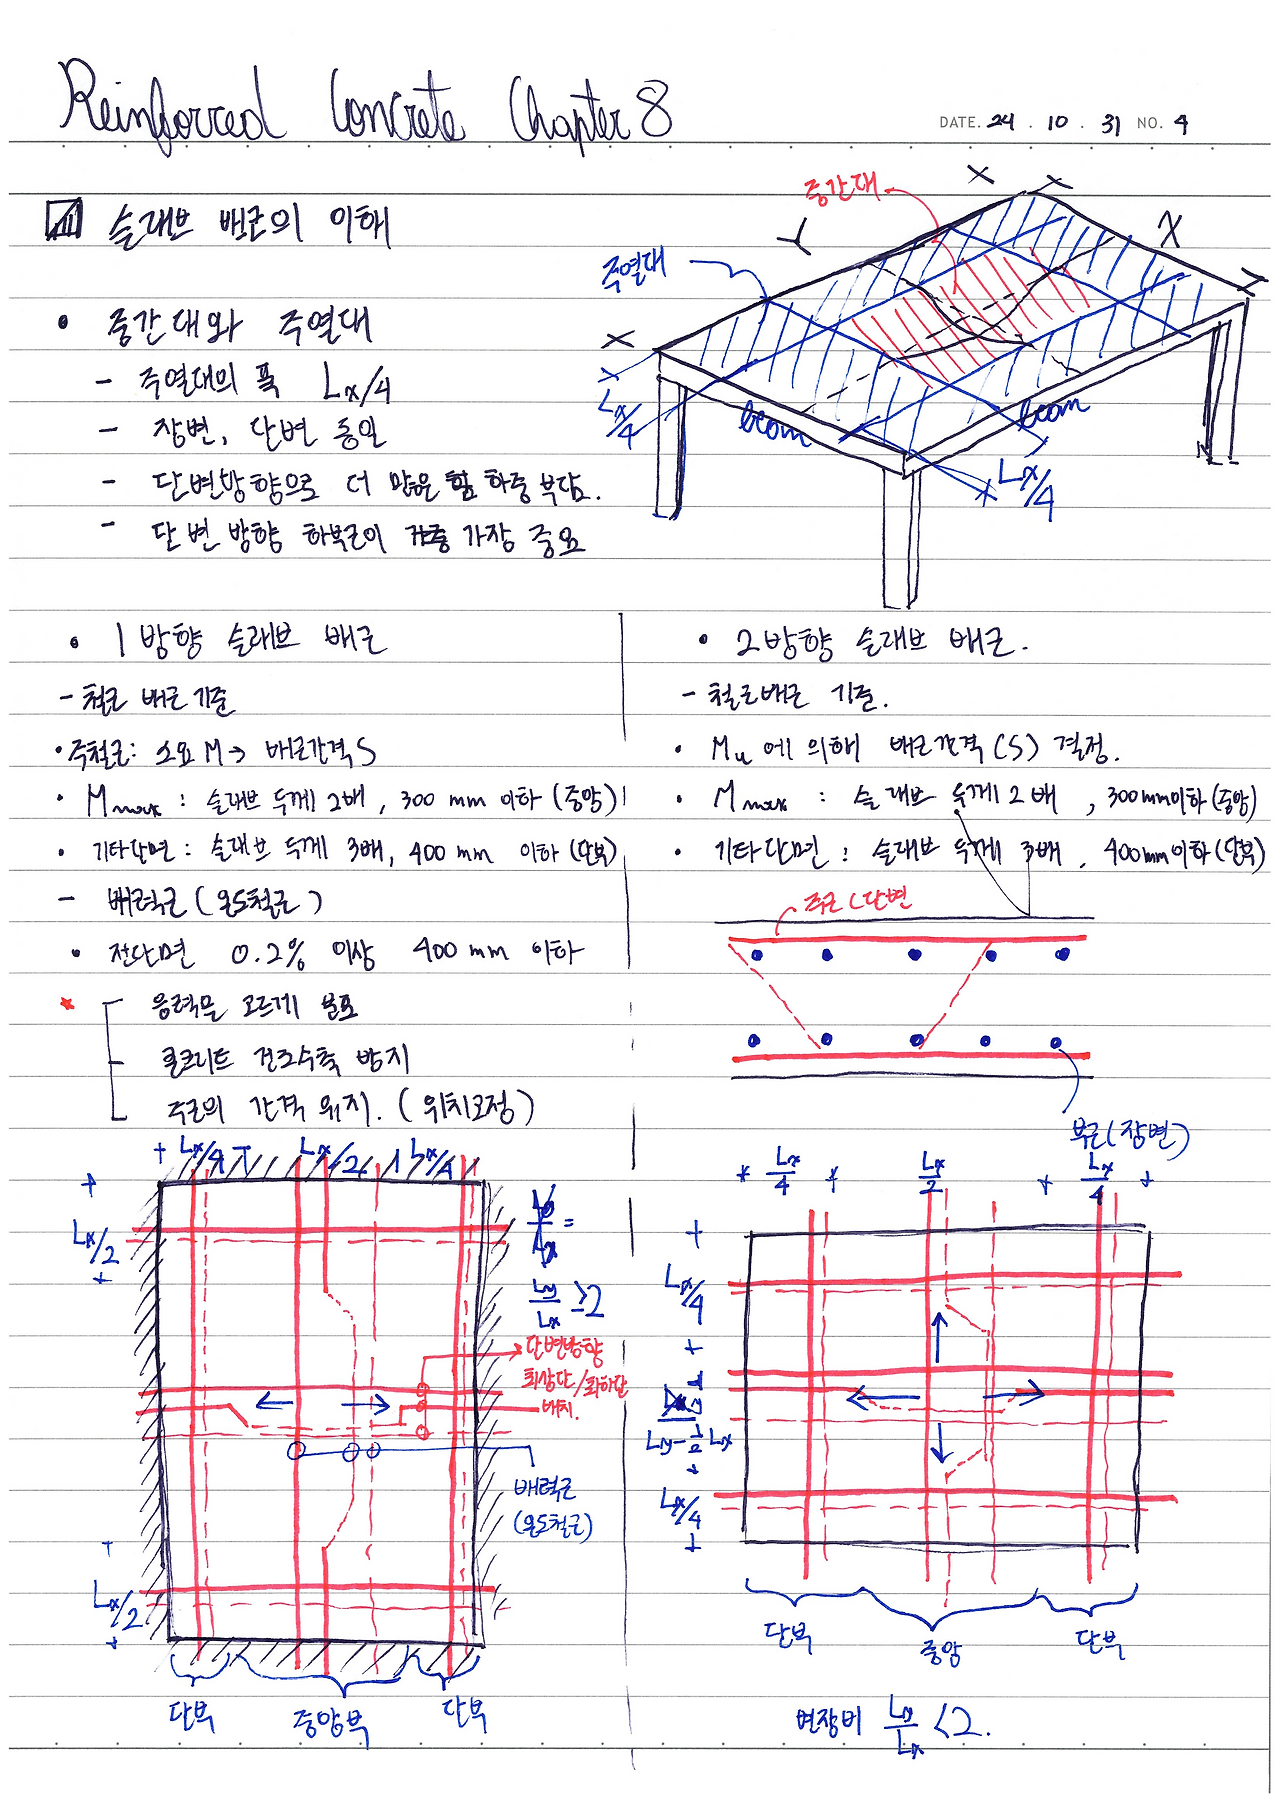 Reinforced Concrete Chapter 8
DATE. 24 . 10 . 31 NO. 4
슬래브 배근의 이해
• 중간대와 주열대
- 주열대의 폭 Lx/4
- 장변, 단변 동일
- 단변방향으로 더 많은 하중 부담.
- 단변 방향 하부근이 가장 중요
중간대
주열대
X
Y
Lx/4
beam
beam
Lx/4
• 1방향 슬래브 배근
- 철근 배근 기준
• 주철근: 소요 M → 배근간격 S
• Mmax : 슬래브 두께 2배, 300 mm 이하 (중앙)
• 기타단면 : 슬래브 두께 3배, 400 mm 이하 (단부)
- 배력근 (온도철근)
• 전단면 0.2% 이상 400 mm 이하
★ 응력을 고르게 분포
콘크리트 건조수축 방지
주근의 간격 유지. (위치고정)
• 2방향 슬래브 배근.
- 철근배근 기준.
• Mu에 의해 배근간격(S) 결정.
• Mmax : 슬래브 두께 2배, 300mm이하 (중앙)
• 기타단면 : 슬래브 두께 3배, 400mm이하 (단부)
주근(단변
부근(장변)
Lx/4 Lx/2 Lx/4
Lx/2
Ly/Lx ≥2
단변방향
최상단/최하단
배치.
배력근
(온도철근)
Lx/2
단부 중앙부 단부
Lx/4 Lx/2 Lx/4
Lx/4
Ly-1/2Lx
Lx/4
단부 중앙 단부
변장비 Ly/Lx <2.